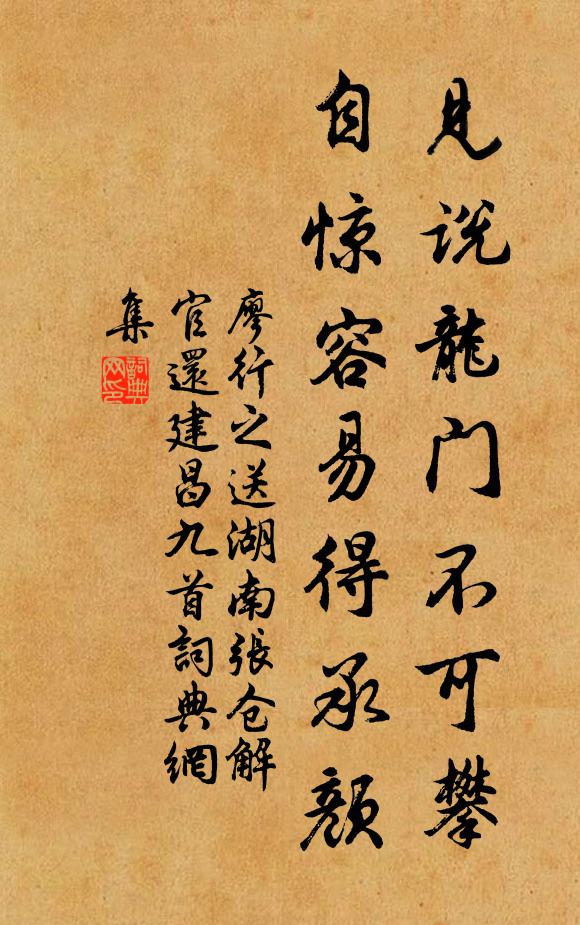 见说龍门不可攀
自惊容易得承颜
廖行之送湖南張仓解
官還建昌九首詞典網
集
詞典
网印